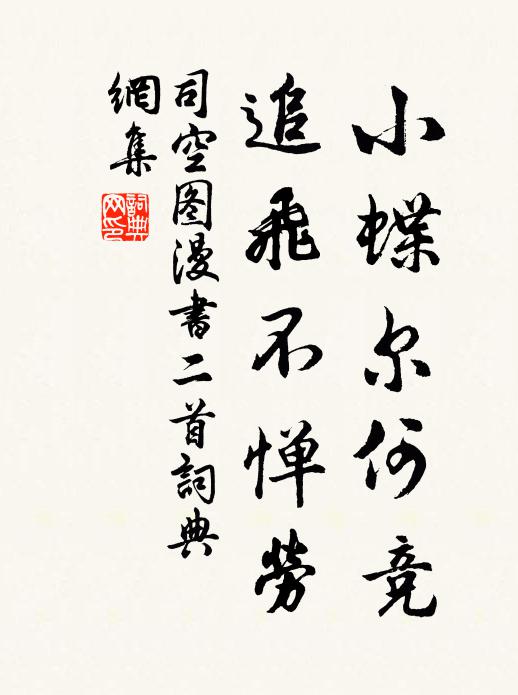 小蝶尔何竞
追飛不惮勞
司空图漫書二首詞典
網集
詞典
网印